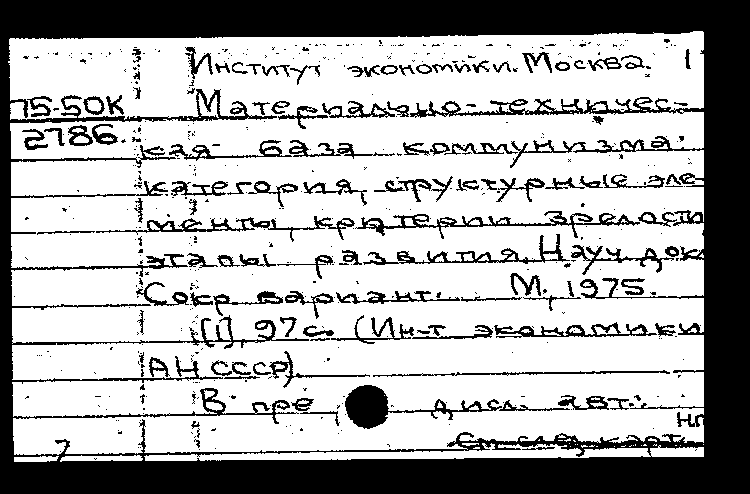 Институт экономики. Москва. 1
75-50К Материально-техничес-
2786. кая база коммунизма:
категория, структурные эле-
менты, критерии зрелости
этапы развития. Науч. док
Сокр. вариант. М., 1975.
[1], 97с. (Ин-т экономики
АН СССР).
В пре дисл. авт.:
нп
См след. карт.
7